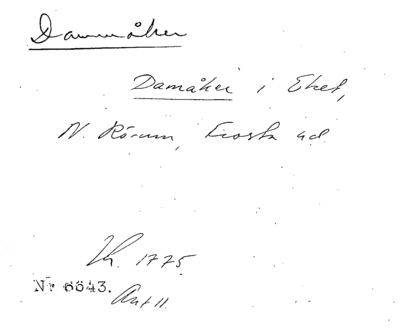 Dammåker
Damåker i Eket,
N. Rörum, Frosta hd
Lh. 1775.
Nr 6543. Ant 11.